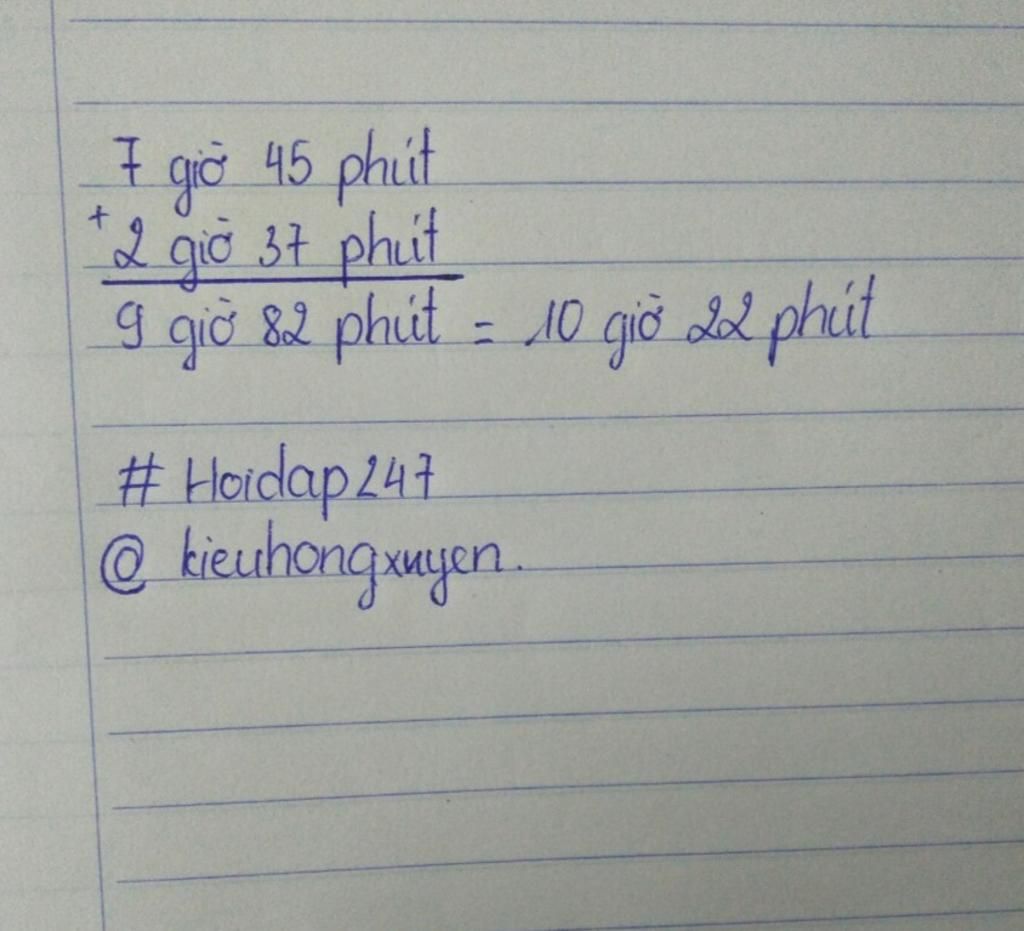 7 giờ 45 phút
+
2 giờ 37 phút
9 giờ 82 phút = 10 giờ 22 phút
# Hoidap247
@ kieuhongxuyen.